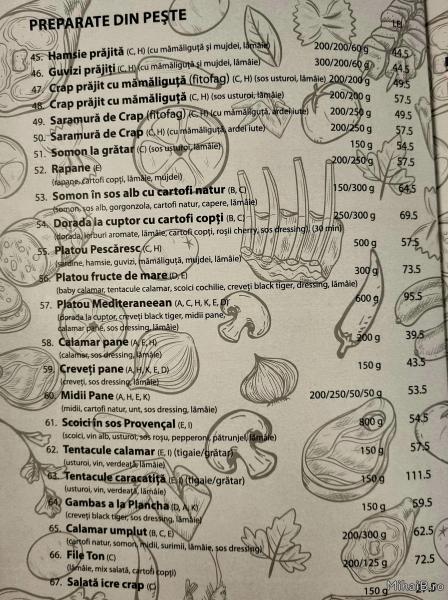 PREPARATE DIN PEȘTE
LEI
45. Hamsie prăjită (C, H) (cu mămăliguță și mujdei, lămâie) 200/200/60 g 44.5
46. Guvizi prăjiți (C, H) (cu mămăliguță și mujdei, lămâie) 300/200/60 g 44.5
47. Crap prăjit cu mămăliguță (fitofag) (C, H) (sos usturoi, lămâie) 200/200 g 49.5
48. Crap prăjit cu mămăliguță (C, H) (sos usturoi, lămâie) 200/200 g 57.5
49. Saramură de Crap (fitofag) (C, H) (cu mămăliguță, ardei iute) 200/250 g 49.5
50. Saramură de Crap (C, H) (cu mămăliguță, ardei iute) 200/250 g 57.5
51. Somon la grătar (C) (sos usturoi, lămâie) 150 g 54.5
52. Rapane (E) 200/250 g 57.5
(rapane, cartofi copți, lămâie, mujdei)
53. Somon în sos alb cu cartofi natur (B, C) 150/300 g 64.5
(somon, sos alb, gorgonzola, cartofi natur, capere, lămâie)
54. Dorada la cuptor cu cartofi copți (B, C) 250/300 g 69.5
(dorada, ierburi aromate, lămâie, cartofi copți, roșii cherry, sos dressing), (30 min)
55. Platou Pescăresc (C, H) 500 g 57.5
(sardine, hamsie, guvizi, mămăliguță, mujdei, lămâie)
56. Platou fructe de mare (D, E) 300 g 73.5
(baby calamar, tentacule calamar, scoici cochilie, creveți black tiger, dressing, lămâie)
57. Platou Mediteraneean (A, C, H, K, E, D) 600 g 95.5
(dorada la cuptor, creveți black tiger, midii pane,
calamar pane, sos dressing, lămâie)
58. Calamar pane (A, E, H) 200 g 39.5
(calamar, sos dressing, lămâie)
59. Creveți pane (A, H, K, E, D) 150 g 43.5
(creveți, sos dressing, lămâie)
60. Midii Pane (A, H, E, K) 200/250/50/50 g 53.5
(midii, cartofi natur, unt, sos dressing, lămâie)
61. Scoici în sos Provençal (E, I) 800 g 54.5
(scoici, vin alb, usturoi, sos roșu, pepperoni, pătrunjel, lămâie)
62. Tentacule calamar (E, I) (tigaie/grătar) 150 g 57.5
(usturoi, vin, verdeață, lămâie)
63. Tentacule caracatiță (E, I) (tigaie/grătar) 150 g 111.5
(usturoi, vin, verdeață, lămâie)
64. Gambas a la Plancha (D, A, K) 150 g 59.5
(creveți black tiger, sos dressing, lămâie)
65. Calamar umplut (B, C, E) 200/300 g 62.5
(cartofi natur, somon, midii, surimii, lămâie, sos dressing)
66. File Ton (C) 200/125 g 72.5
(lămâie, mix salată, cartofi copți)
67. Salată icre crap (C) 150 g
MihaiB.ro